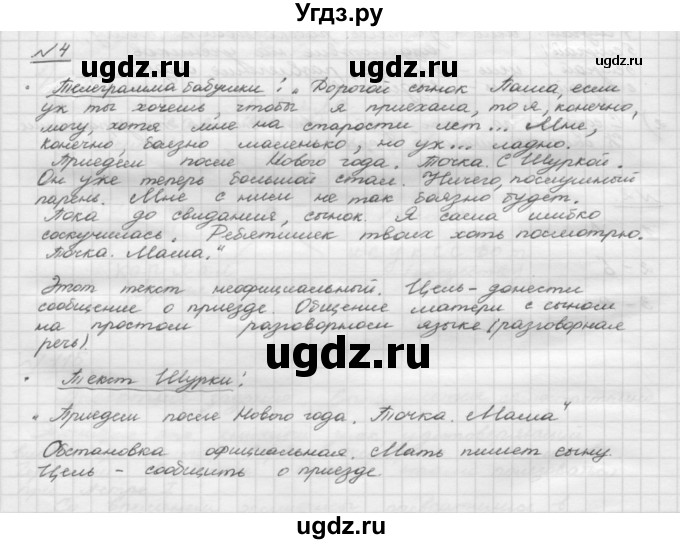 Угдз.ру
№4
• Телеграмма бабушки: „Дорогой сынок Паша, если
уж ты хочешь, чтобы я приехала, то я, конечно,
могу, хотя мне на старости лет... Мне,
конечно, боязно маленько, но уж... ладно.
Приедем после Нового года. Точка. С Шуркой.
Он уже теперь большой стал. Ничего, послушный
парень. Мне с ним не так боязно будет.
Пока до свидания, сынок. Я сама шибко
соскучилась. Ребятишек твоих хоть посмотрю.
Точка. Мама."
Этот текст неофициальный. Цель - донести
сообщение о приезде. Общение матери с сыном
на простом разговорном языке (разговорная
речь).
ugdz.ru
• Текст Шурки:
„Приедем после Нового года. Точка. Мама"
Обстановка официальная. Мать пишет сыну.
Цель - сообщить о приезде
ugdz.ru
ugdz.ru
ugdz.ru
ugdz.ru
ugdz.ru